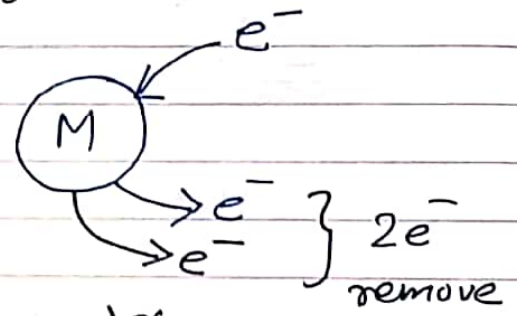 e⁻
M
e⁻
e⁻ } 2e⁻
remove